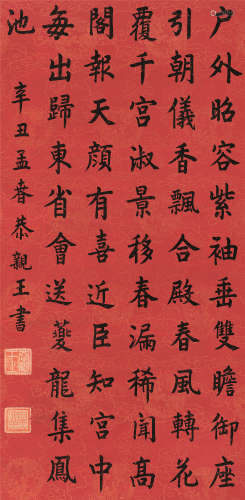 户外昭容紫袖垂雙瞻御座
引朝儀香飄合殿春風轉花
覆千宮淑景移春漏稀聞高
閣報天顏有喜近臣知宮中
每出歸東省會送夔龍集鳳
池
辛丑孟春恭親王書